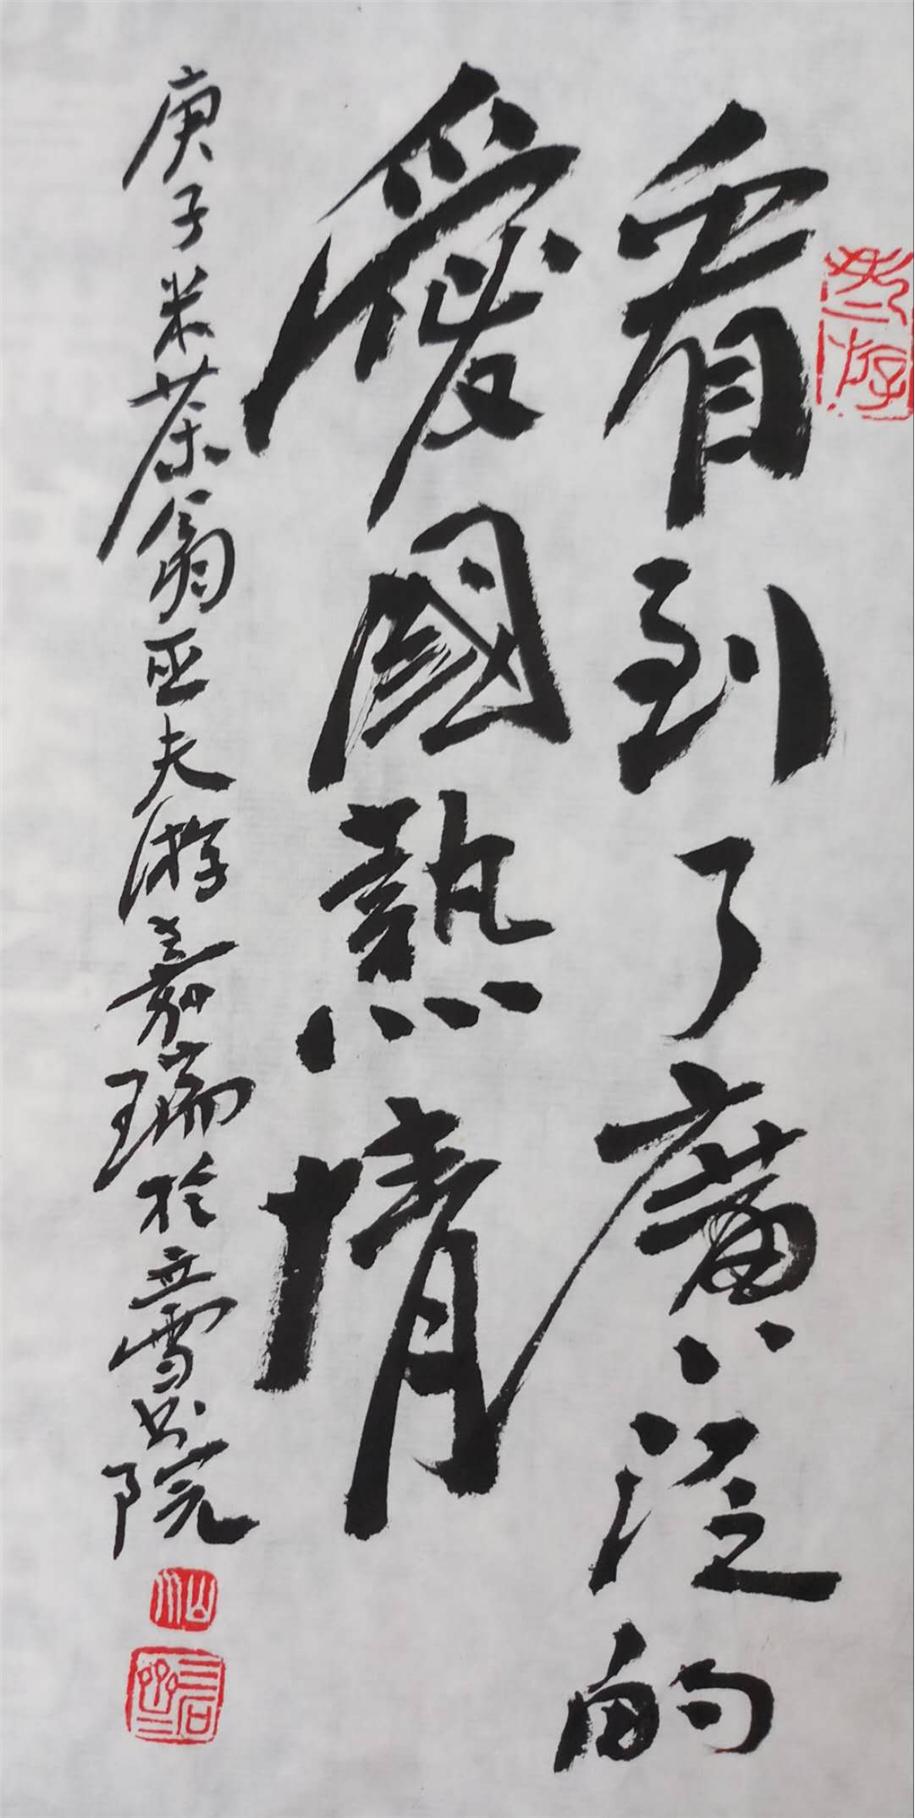 看到了廣泛的
愛國熱情
庚子米茶翁亞夫游嘉瑞於立雪書院